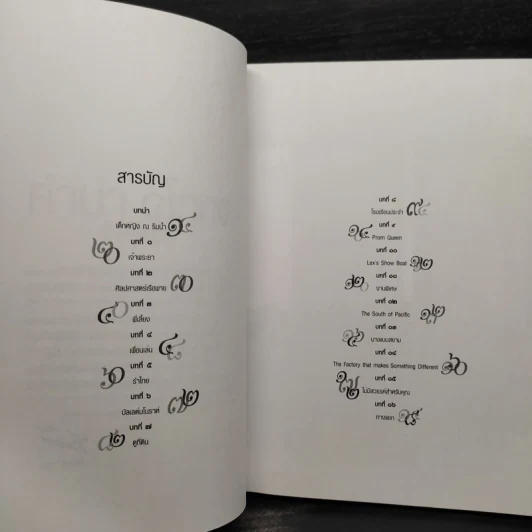 สารบัญ
บทนำ
เด็กหญิง ณ ริมน้ำ ๑๔
บทที่ ๑
๒๐ เจ้าพระยา
บทที่ ๒
ศิลปศาสตร์เรือพาย ๓๐
บทที่ ๓
๔๐ พี่เลี้ยง
บทที่ ๔
เพื่อนเล่น
บทที่ ๕
รำไทย
บทที่ ๖
บัลเลต์มโนราห์ ๗๒
บทที่ ๗
๘๒ ดูที่ดิน
บทที่ ๘
โรงเรียนประจำ ๙๔
บทที่ ๙
Prom Queen
บทที่ ๑๐
Lex's Show Boat ๑๑๒
บทที่ ๑๑
๑๒๐ งานพิเศษ
บทที่ ๑๒
The South of Pacific
บทที่ ๑๓
นางแบบสยาม
บทที่ ๑๔
The Factory that makes Something Different ๑๖๐
บทที่ ๑๕
ไม่มีสวรรค์สำหรับคุณ
บทที่ ๑๖
กาบแพก